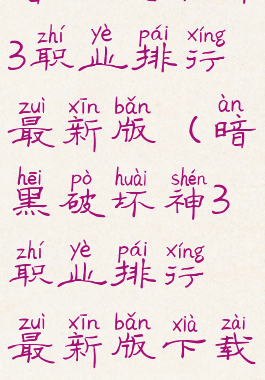 zhí yè pái xíng
3职业排行
zuì xīn bǎn àn
最新版（暗
hēi pò huài shén
黑破坏神3
zhí yè pái xíng
职业排行
zuì xīn bǎn xià zài
最新版下载